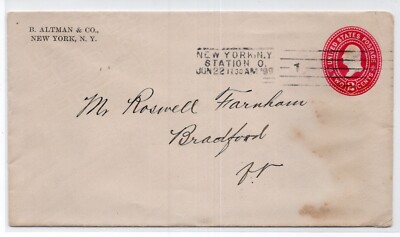 B. ALTMAN & CO.,
NEW YORK, N. Y.
NEW YORK, N.Y.
STATION O.
JUN 22 11 30 AM '99
1
UNITED STATES POSTAGE
2
TWO CENTS
2
Mr Roswell Farnham
Bradford
Vt